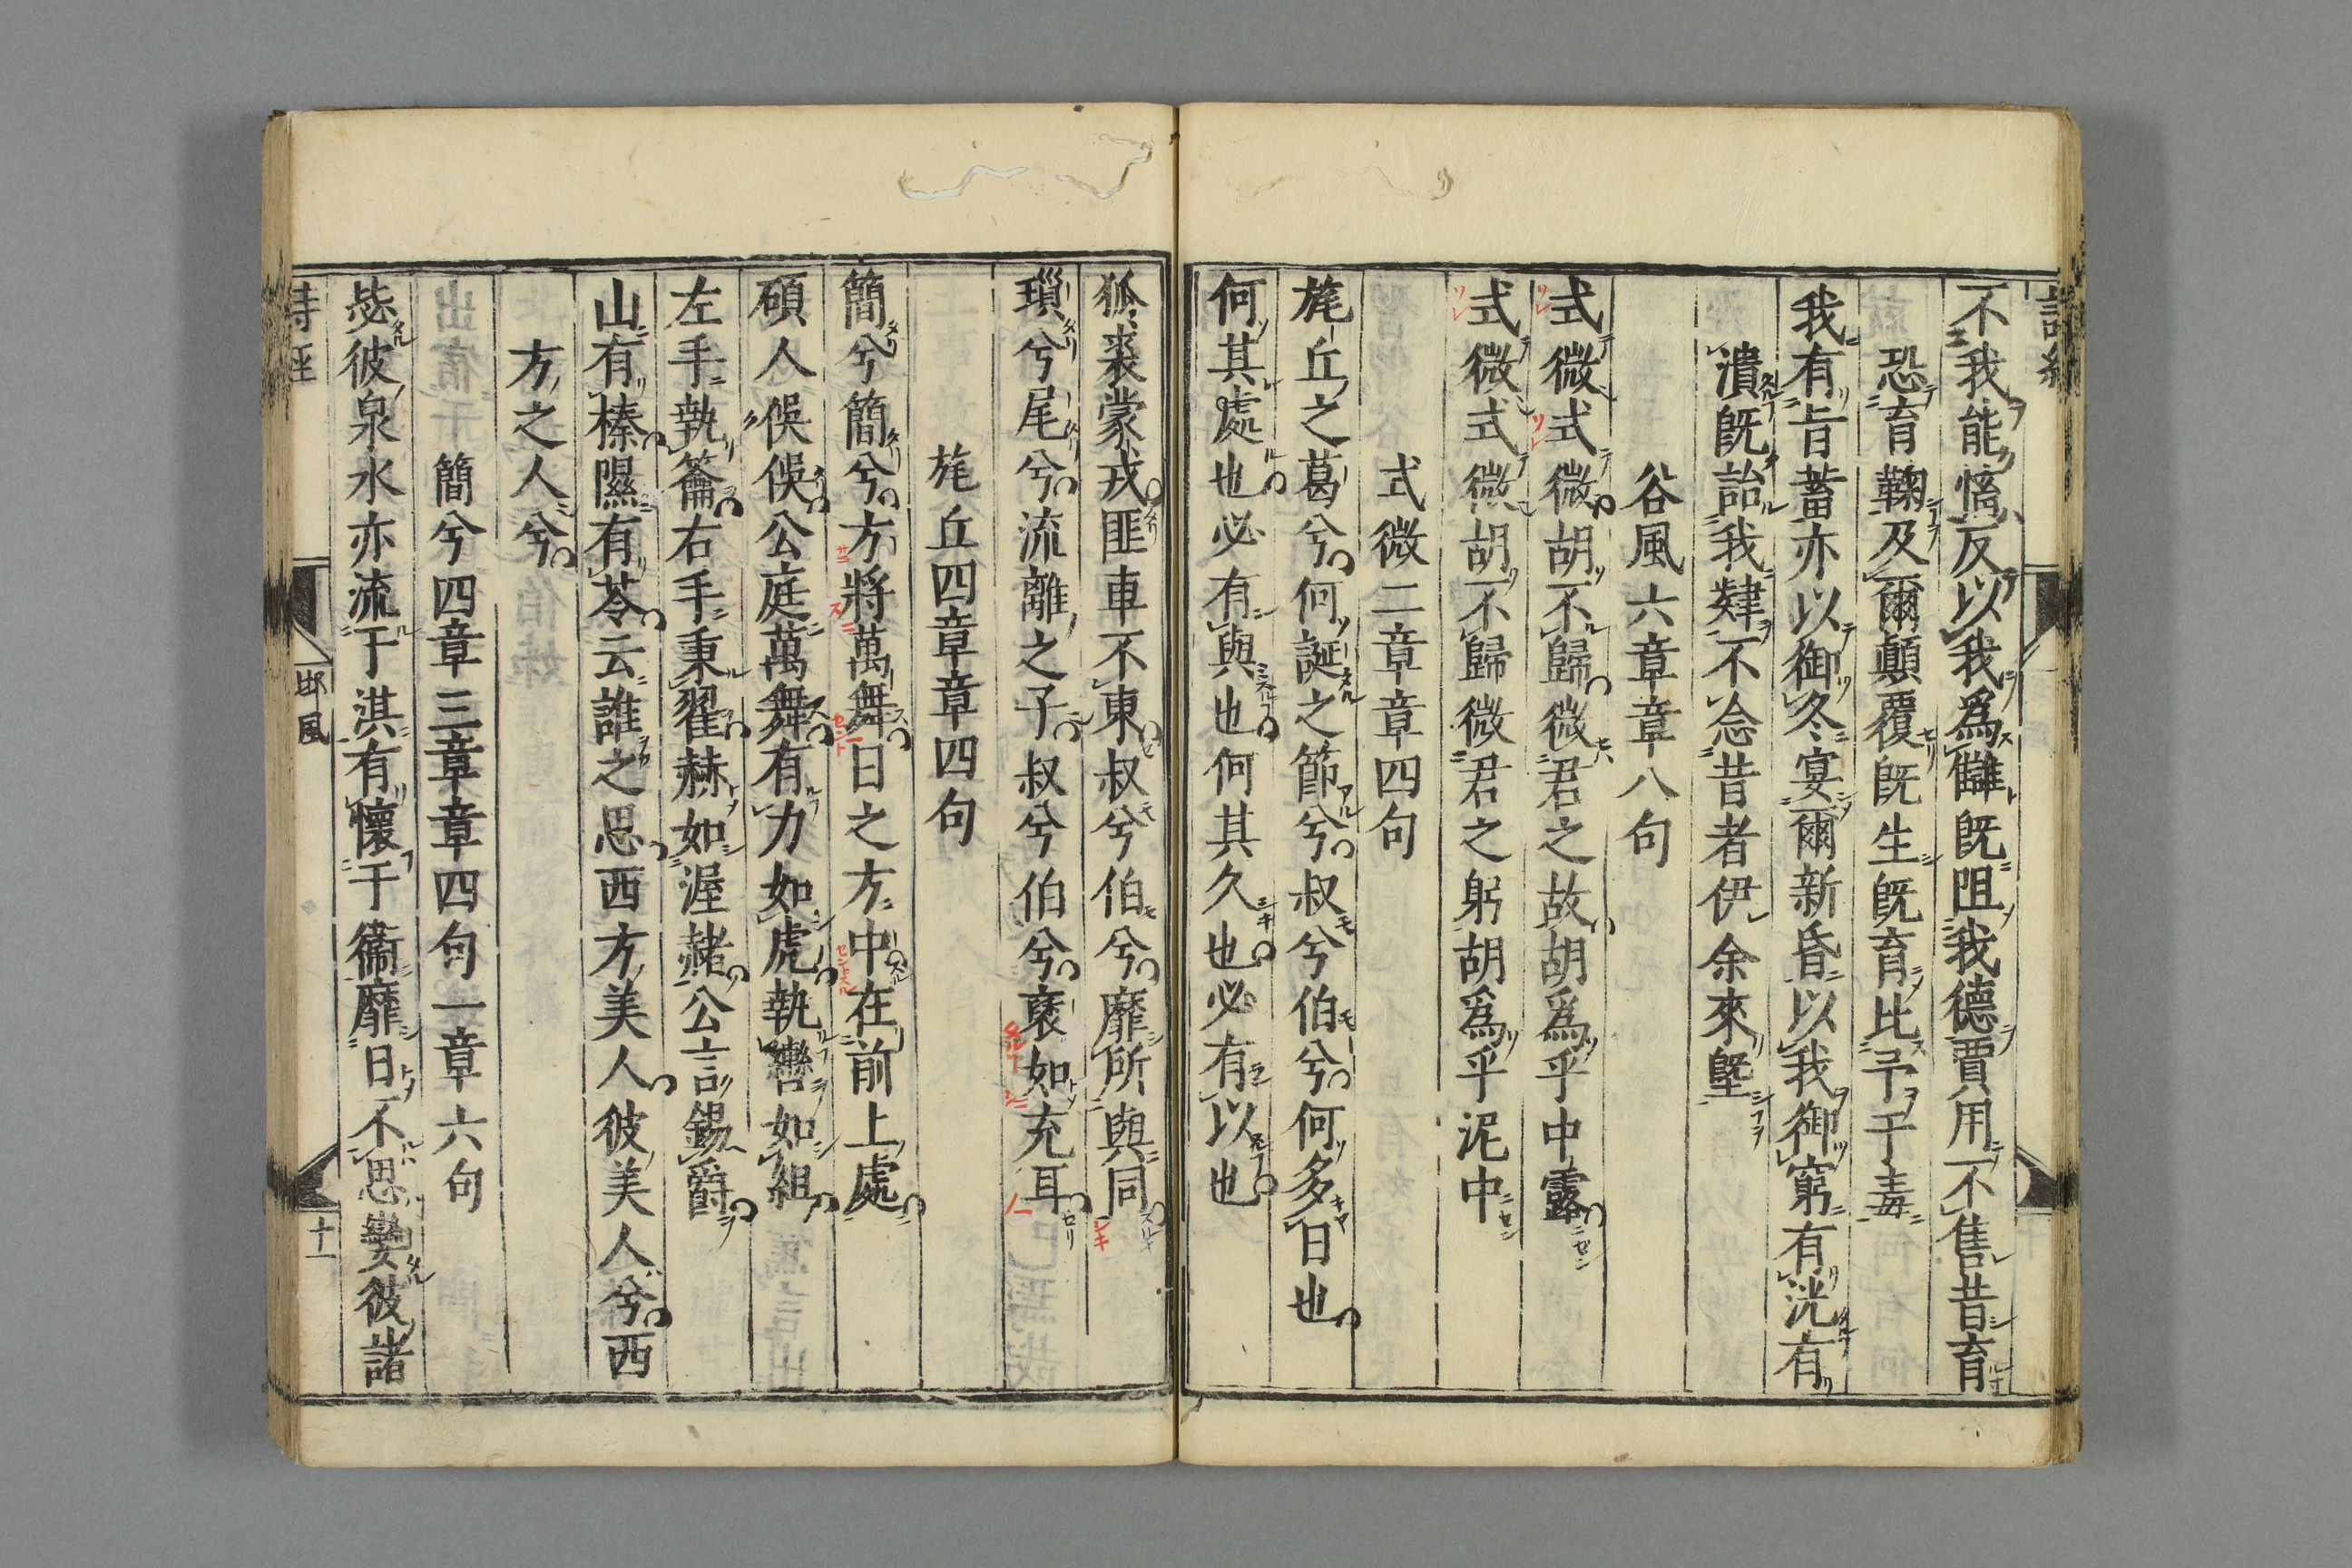 不我能慉反以我爲讎既阻我德賈用不售昔育
恐育鞠及爾顛覆既生既育比予于毒
我有旨蓄亦以御冬宴爾新昏以我御窮有洸有
潰既詒我肄不念昔者伊余來塈
谷風六章章八句
式微式微胡不歸微君之故胡爲乎中露
式微式微胡不歸微君之躬胡爲乎泥中
式微二章章四句
旄丘之葛兮何誕之節兮叔兮伯兮何多日也
何其處也必有與也何其久也必有以也
狐裘蒙戎匪車不東叔兮伯兮靡所與同
瑣兮尾兮流離之子叔兮伯兮褎如充耳
旄丘四章章四句
簡兮簡兮方將萬舞日之方中在前上處
碩人俁俁公庭萬舞有力如虎執轡如組
左手執籥右手秉翟赫如渥赭公言錫爵
山有榛隰有苓云誰之思西方美人彼美人兮西
方之人兮
簡兮四章三章章四句一章六句
毖彼泉水亦流于淇有懷于衞靡日不思孌彼諸
邶風
十一